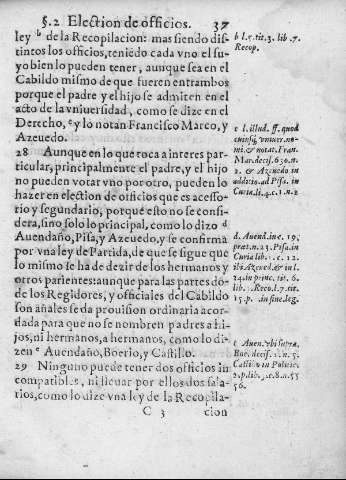 §.2 Election de officios. 37
ley b de la Recopilacion: mas siendo dis-
tintos los officios, teniẽdo cada vno el su-
yo bien lo pueden tener, aunque sea en el
Cabildo mismo de que fueren entrambos
porque el padre y el hijo se admiten en el
acto de la vniuersidad, como se dize en el
Derecho, c y lo notan Francisco Marco, y
Azeuedo.
28 Aunque en lo que toca a interes par-
ticular, principalmente el padre, y el hijo
no pueden votar vno por otro, pueden lo
hazer en election de officios que es acesso-
rio y segundario, porque esto no se consi-
dera, sino solo lo principal, como lo dizẽ d
Auendaño, Pisa, y Azeuedo, y se confirma
por vna ley de Partida, de que se sigue que
lo mismo se ha de dezir de los hermanos y
otros parientes: aunque para las partes do-
de los Regidores, y officiales del Cabildo
son añales se da prouision ordinaria acor-
dada para que no se nombren padres a hi-
jos, ni hermanos, a hermanos, como lo di-
zen e Auendaño, Boerio, y Castillo.
29 Ninguno puede tener dos officios in
compatibles, ni lleuar por ellos dos sala-
rios, como lo dize vna ley de la Recopila-
C 3 cion
b l.5. tit.3. lib.7.
Recop.
c l. illud. ff. quod
cuiusq; vniuer. no-
mi. & notat. Fran.
Mar. decis. 630. n.
2. & Azeuedo in
addictio. ad Pisa. in
Curia li.4. c.1. n.2
d. Auend. in c. 19.
præt. n.23. Pisa. in
Curia lib. c. 12.
ibi Azeued. & in l.
24. in princ. tit. 6.
lib. Reco. l.7. tit.
15. p. in fine. leg.
e Auen. vbi supra,
Boe. decis. n. 5.
Castillo in Politic.
2. p. lib. c.8. n.55
56.